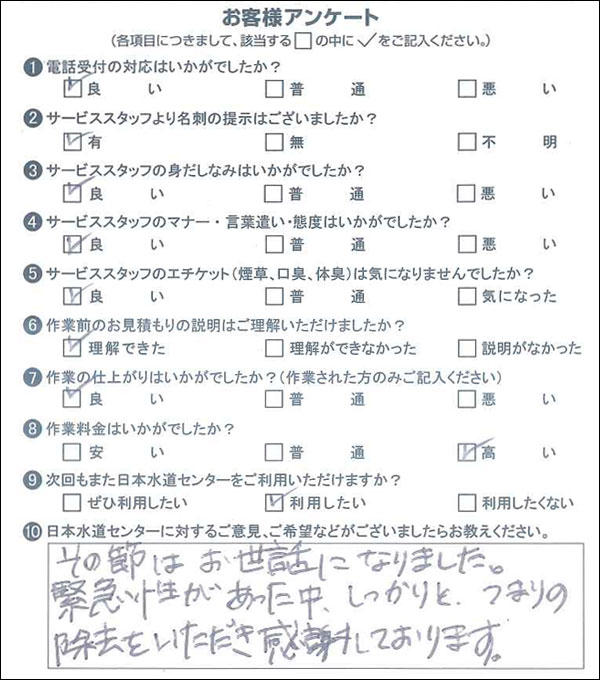 お客様アンケート
(各項目につきまして、該当する□の中に✓をご記入ください。)
❶電話受付の対応はいかがでしたか?
☑良い □普通 □悪い
❷サービススタッフより名刺の提示はございましたか?
☑有 □無 □不明
❸サービススタッフの身だしなみはいかがでしたか?
☑良い □普通 □悪い
❹サービススタッフのマナー・言葉遣い・態度はいかがでしたか?
☑良い □普通 □悪い
❺サービススタッフのエチケット(煙草、口臭、体臭)は気になりませんでしたか?
☑良い □普通 □気になった
❻作業前のお見積もりの説明はご理解いただけましたか?
☑理解できた □理解ができなかった □説明がなかった
❼作業の仕上がりはいかがでしたか?(作業された方のみご記入ください)
☑良い □普通 □悪い
❽作業料金はいかがでしたか?
□安い □普通 ☑高い
❾次回もまた日本水道センターをご利用いただけますか?
□ぜひ利用したい ☑利用したい □利用したくない
❿日本水道センターに対するご意見、ご希望などがございましたらお教えください。
その節はお世話になりました。
緊急性があった中、しっかりと、つまりの
除去をいただき感謝しております。